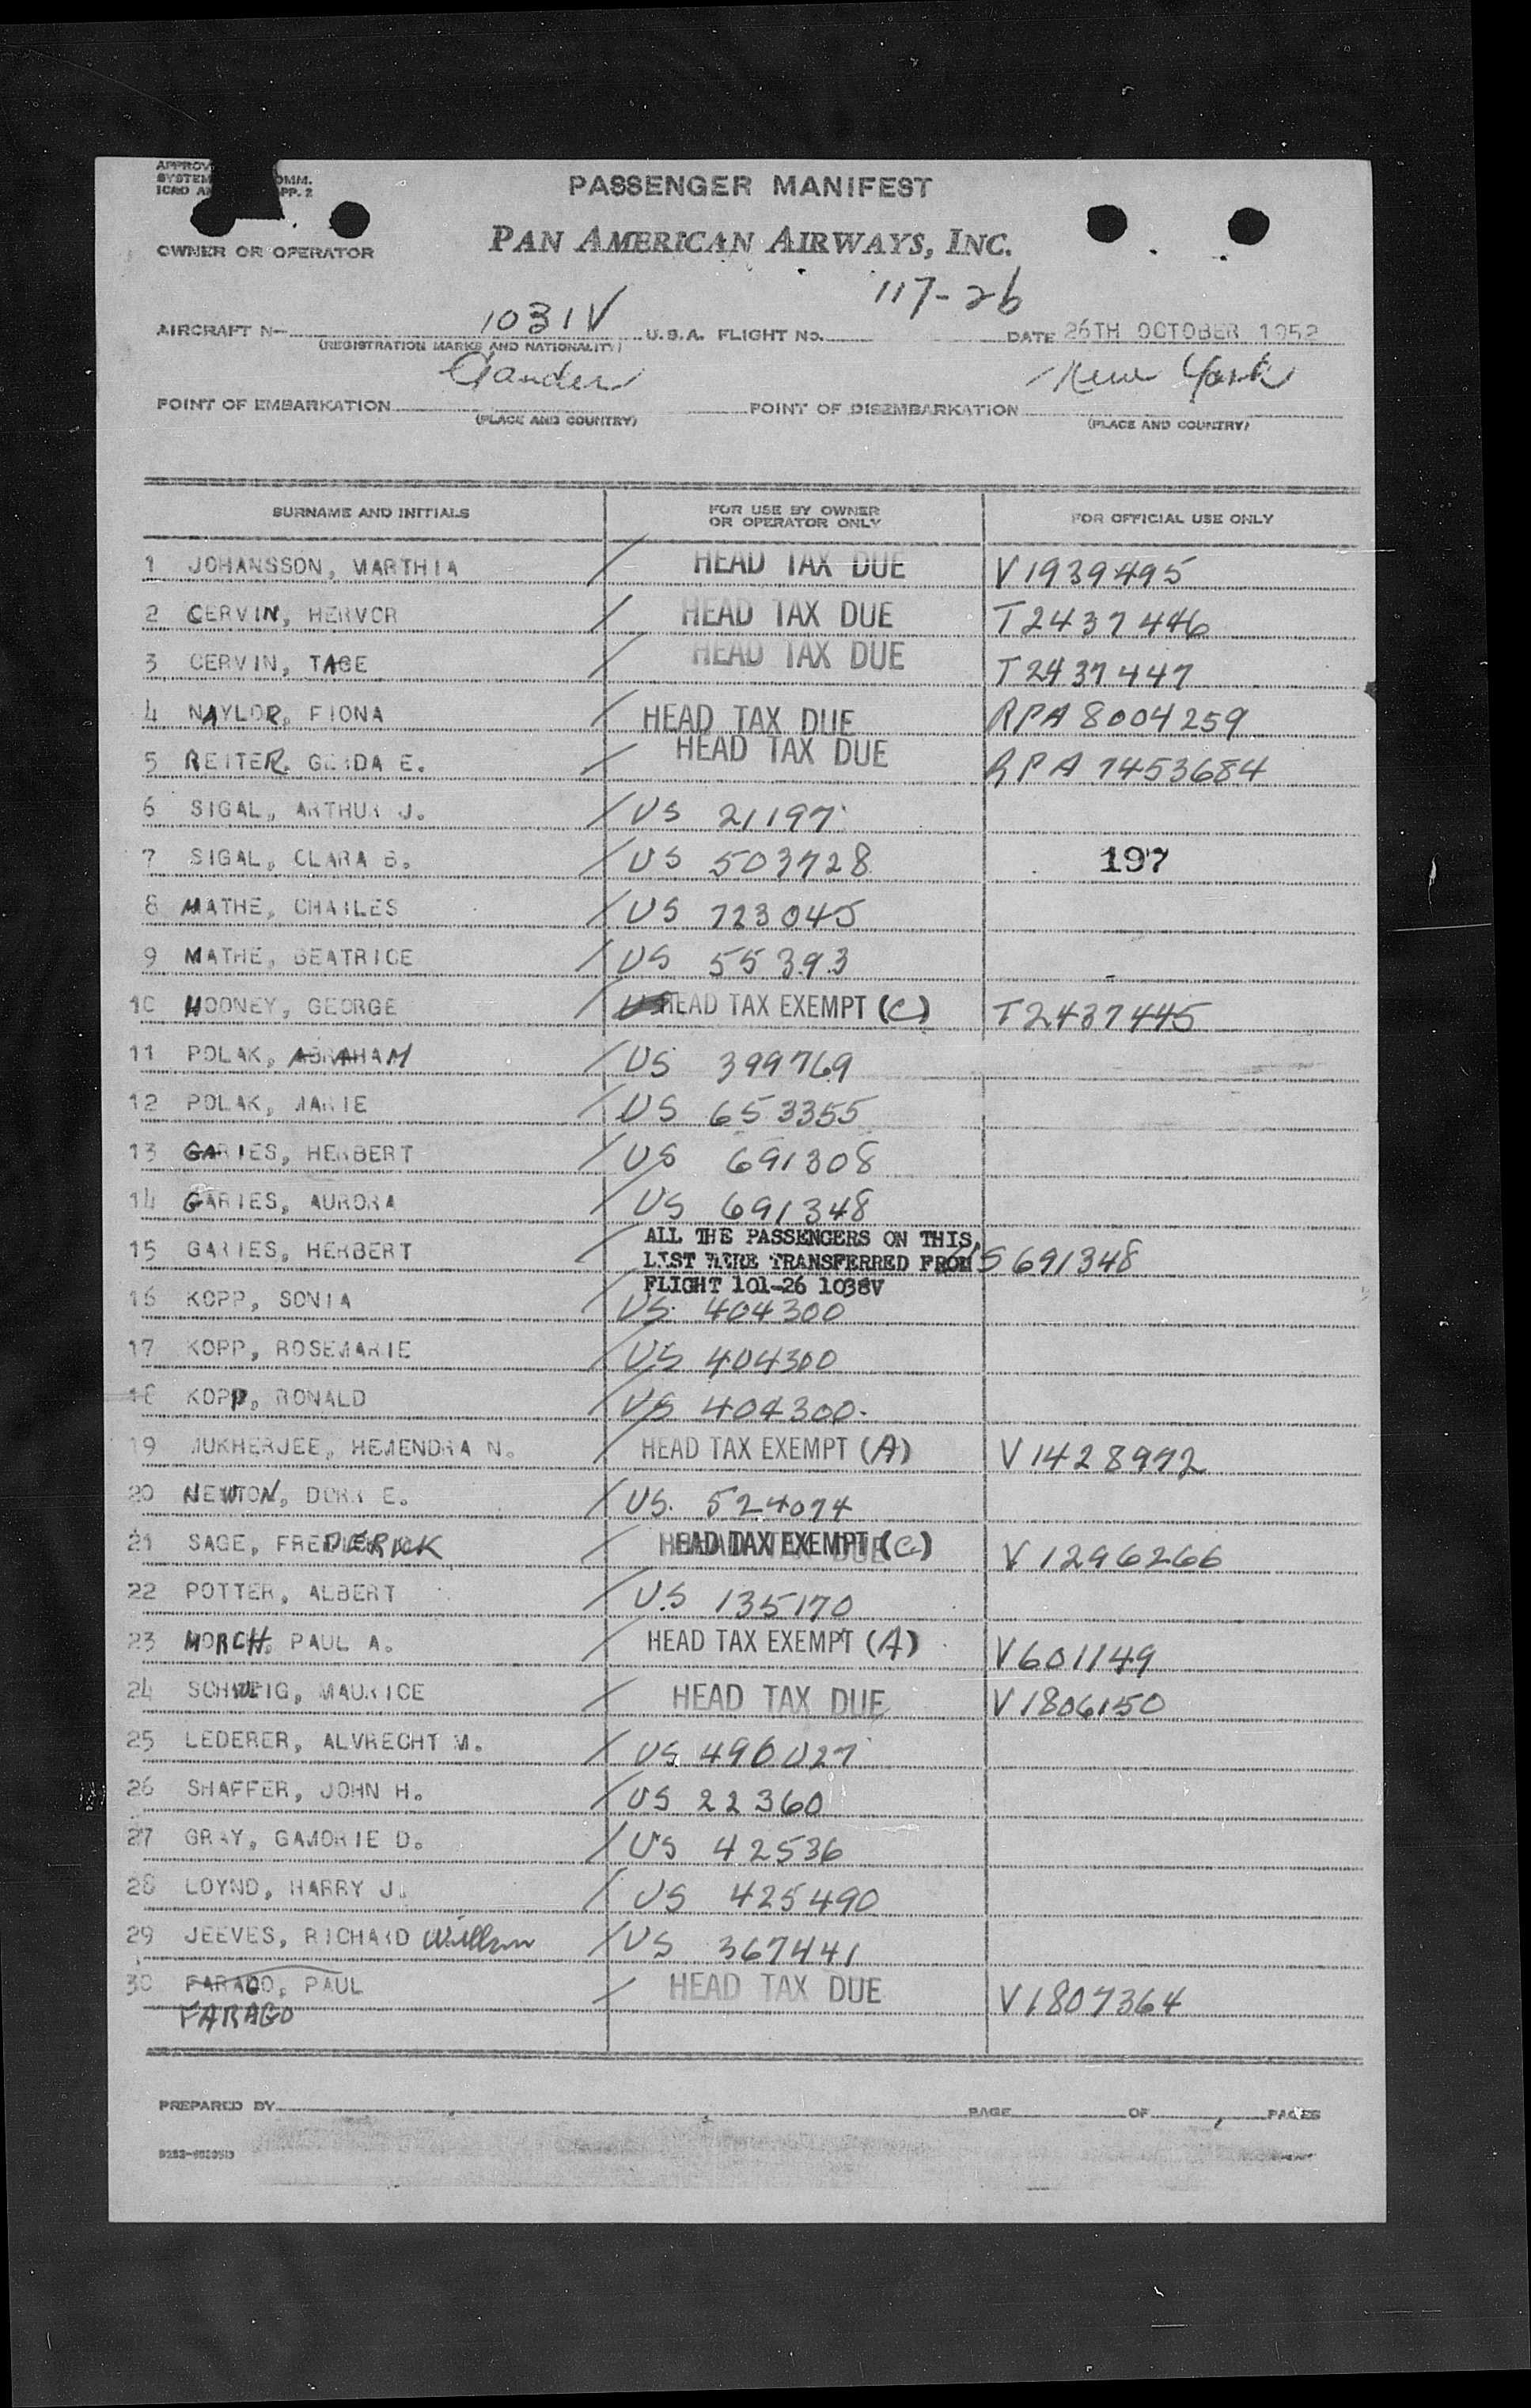 PASSENGER MANIFEST
OWNER OR OPERATOR PAN AMERICAN AIRWAYS, INC.
117-26
AIRCRAFT N- 1031V U.S.A. FLIGHT NO. DATE 26TH OCTOBER 1952
(REGISTRATION MARKS AND NATIONALITY)
Gander New York
POINT OF EMBARKATION POINT OF DISEMBARKATION
(PLACE AND COUNTRY) (PLACE AND COUNTRY)
SURNAME AND INITIALS FOR USE BY OWNER OR OPERATOR ONLY FOR OFFICIAL USE ONLY
1 JOHANSSON, MARTHIA / HEAD TAX DUE V1939495
2 CERVIN, HERVOR / HEAD TAX DUE T2437446
3 CERVIN, TAGE / HEAD TAX DUE T2437447
4 NAYLOR, FIONA / HEAD TAX DUE RPA 8004259
5 REITER, GERDA E. / HEAD TAX DUE RPA 7453684
6 SIGAL, ARTHUR J. / US 21197
7 SIGAL, CLARA B. / US 503728 197
8 MATHE, CHARLES / US 723045
9 MATHE, BEATRICE / US 55393
10 MOONEY, GEORGE / HEAD TAX EXEMPT (C) T2437445
11 POLAK, ABRAHAM / US 399769
12 POLAK, MARIE / US 653355
13 GARIES, HERBERT / US 691308
14 GARIES, AURORA / US 691348
15 GARIES, HERBERT / US 691348
ALL THE PASSENGERS ON THIS
LIST WERE TRANSFERRED FROM
FLIGHT 101-26 1038V
16 KOPP, SONIA / US 404300
17 KOPP, ROSEMARIE / US 404300
18 KOPP, RONALD / US 404300
19 MUKHERJEE, HEMENDRA N. / HEAD TAX EXEMPT (A) V1428972
20 NEWTON, DORA E. / US 524074
21 SAGE, FREDERICK / HEAD TAX EXEMPT (C) V1296266
22 POTTER, ALBERT / US 135170
23 MORCH, PAUL A. / HEAD TAX EXEMPT (A) V601149
24 SCHWEIG, MAURICE / HEAD TAX DUE V1806150
25 LEDERER, ALVRECHT M. / US 496027
26 SHAFFER, JOHN H. / US 22360
27 GRAY, GAMORIE D. / US 42536
28 LOYND, HARRY J. / US 425490
29 JEEVES, RICHARD William / US 367441
30 FARADO, PAUL / HEAD TAX DUE V1807364
FARAGO
PREPARED BY PAGE OF PAGES